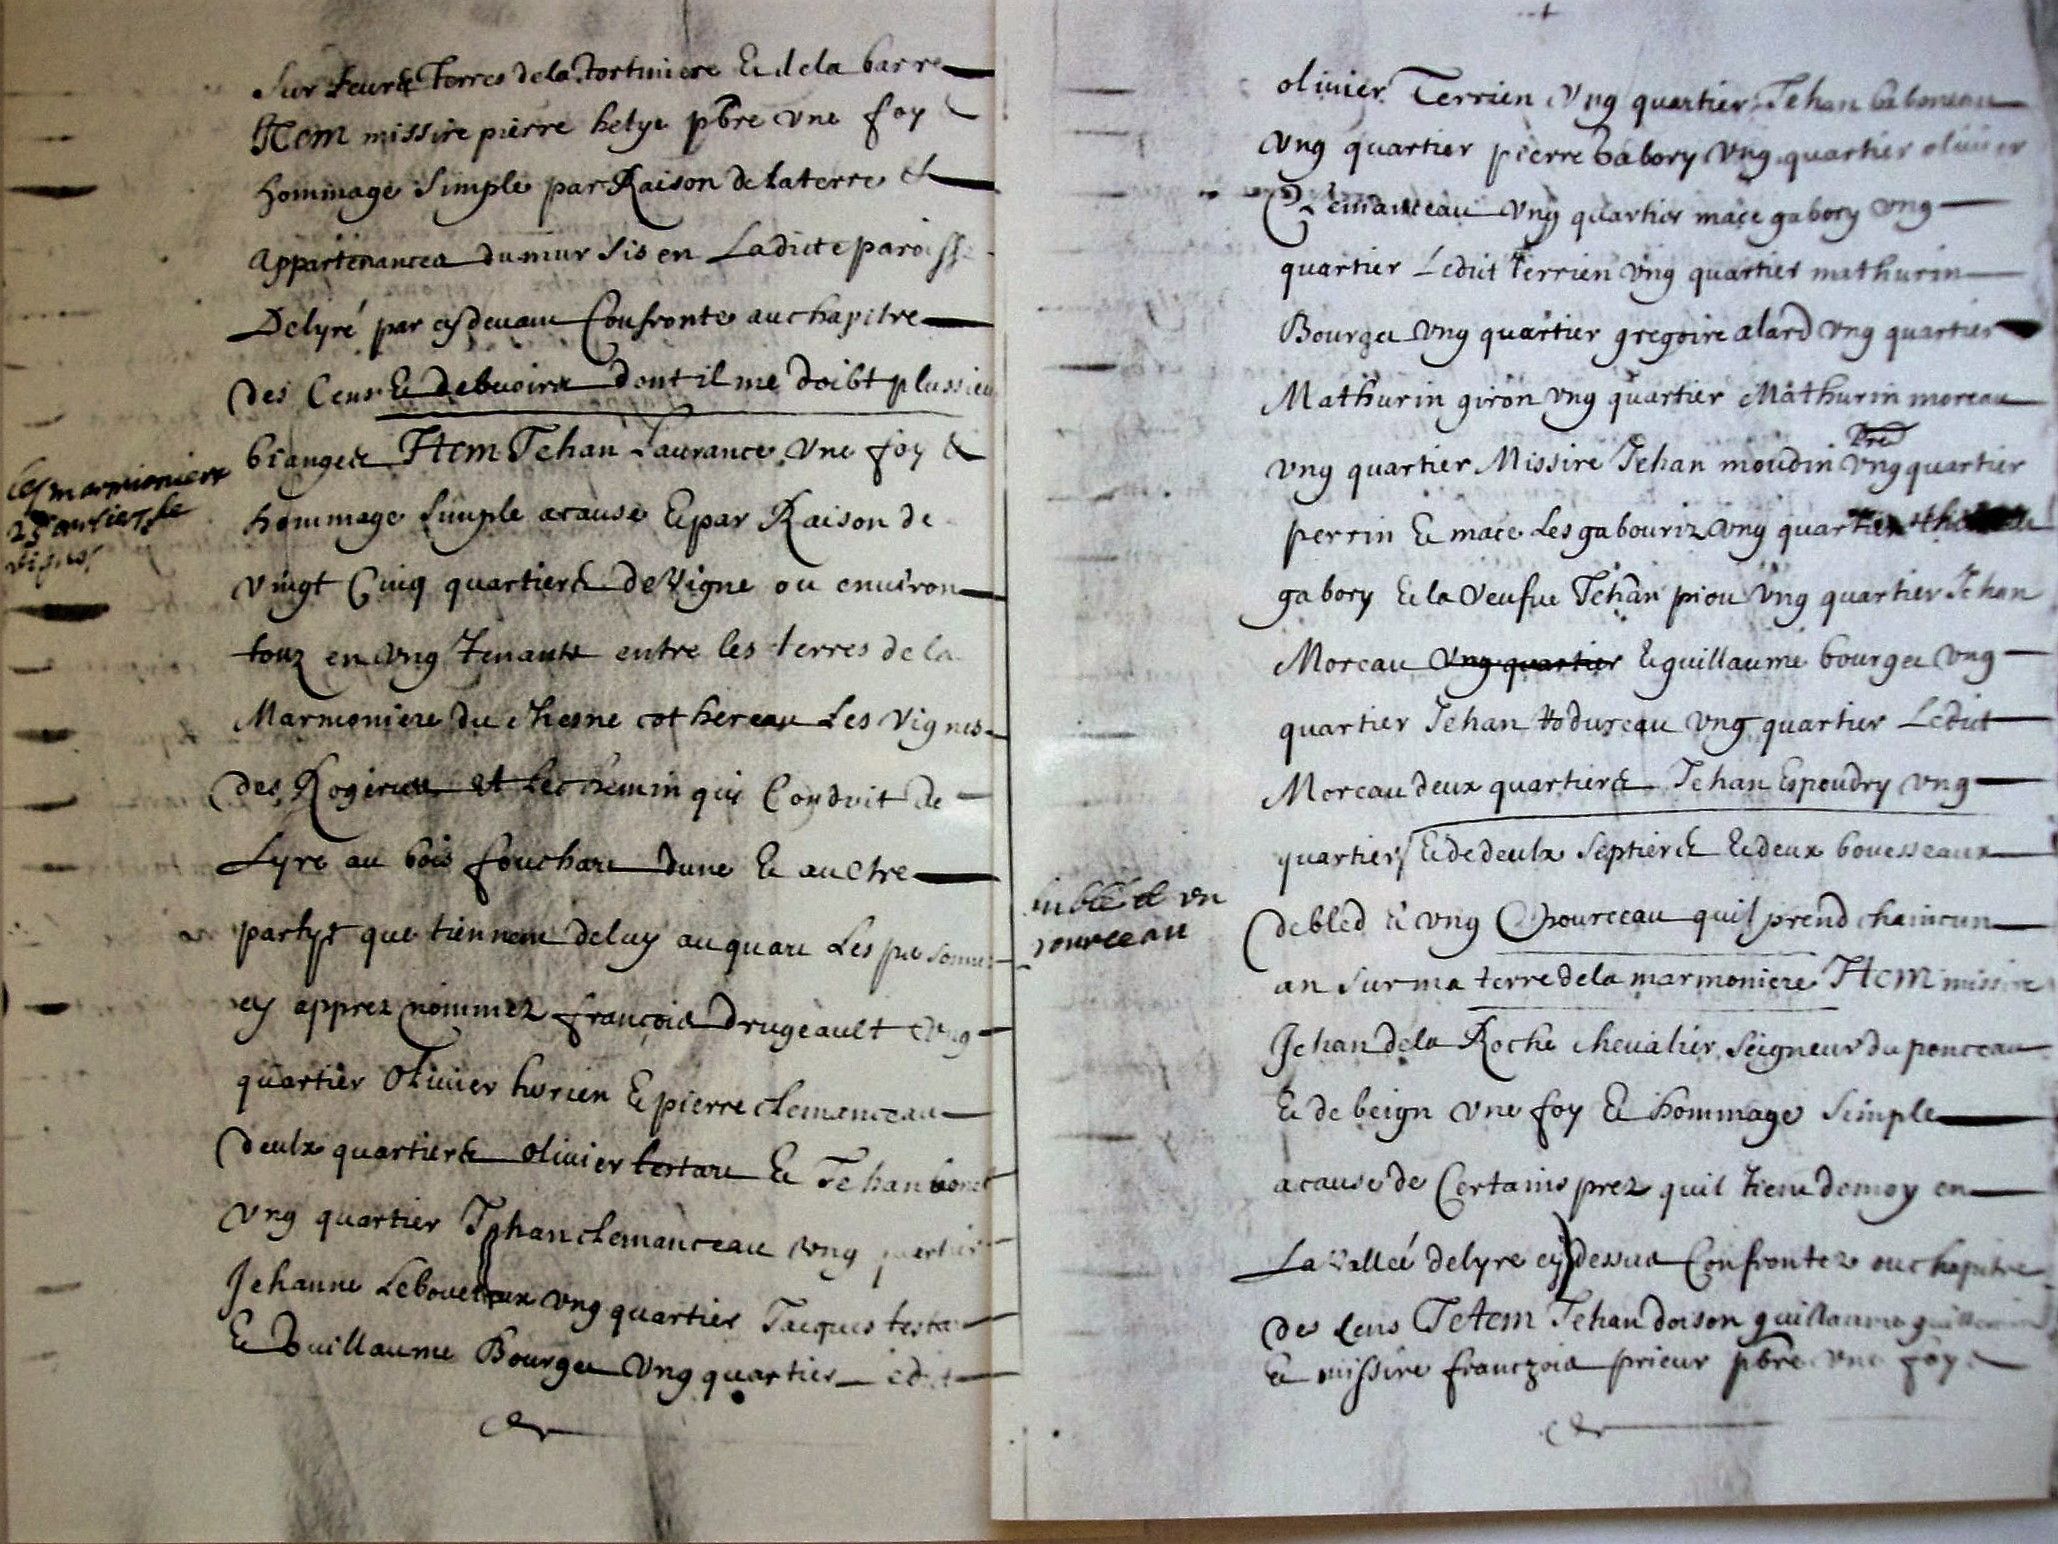 Sur Leurs Terres dela Tortiniere & dela barre
Item missire pierre helye pbre une foy &
hommage Simple par Raison de laterre &
appartenances dumur sis en Ladicte paroisse
Delyré par cy devant Confronte au chapitre
des Cens & debuoirs dont il me doibt plussieu
biangers Item Jehan Laurance Une foy &
hommage Simple acause & par Raison de
vingt Cinq quartiers de Vigne ou environ
touz en ung tenante entre les terres de la
Marmoniere du chesne cothereau Les vignes
des et Le chemin qui Conduit de
Lyre au bois fouchart dune & aultre
partye que tiennent deluy au quart Les
cy apprez nommez françois Drugeault ung
quartier Olivier & pierre clemanceau
Deulx quartiers Olivier testart & Jehan
ung quartier Jehan clemanceau ung quartier
Jehanne ung quartier Jacques
& Guillaume Bourget ung quartier
les marmonieres
25 quartiers de
vignes
olivier Terrien Ung quartier Jehan baboneau
Ung quartier pierre Gabory Ung quartier olivier
Clemanceau Ung quartier mace gabory ung
quartier Ledict terrien Ung quartier mathurin
Bourget Ung quartier gregoire alard ung quartier
Mathurin giron ung quartier Mathurin moreau
ung quartier Missire Jehan moudin pbre ung quartier
perrin & mace Les gabouriz Ung quartier
gabory & la veufue Jehan piou ung quartier Jehan
Moreau ung quartier & guillaume bourget ung
quartier Jehan ung quartier Ledict
Moreau deux quartiers Jehan Espoudry ung
quartier & de deulx Septiers & deux bouesseaux
de bled & ung pourceau quil prend chaincun
an sur ma terre dela marmoniere Item missire
Jehan de la Roche chevalier Seigneur du ponceau
& de beign une foy & hommage Simple
acause de Certains prez quil tient demoy en
La vallee delyre cy dessus Confrontez ou chapitre
des Cens Jetem Jehan doison guillaume
& missire françzois prieur pbre une foy &
en blé et un
pourceau